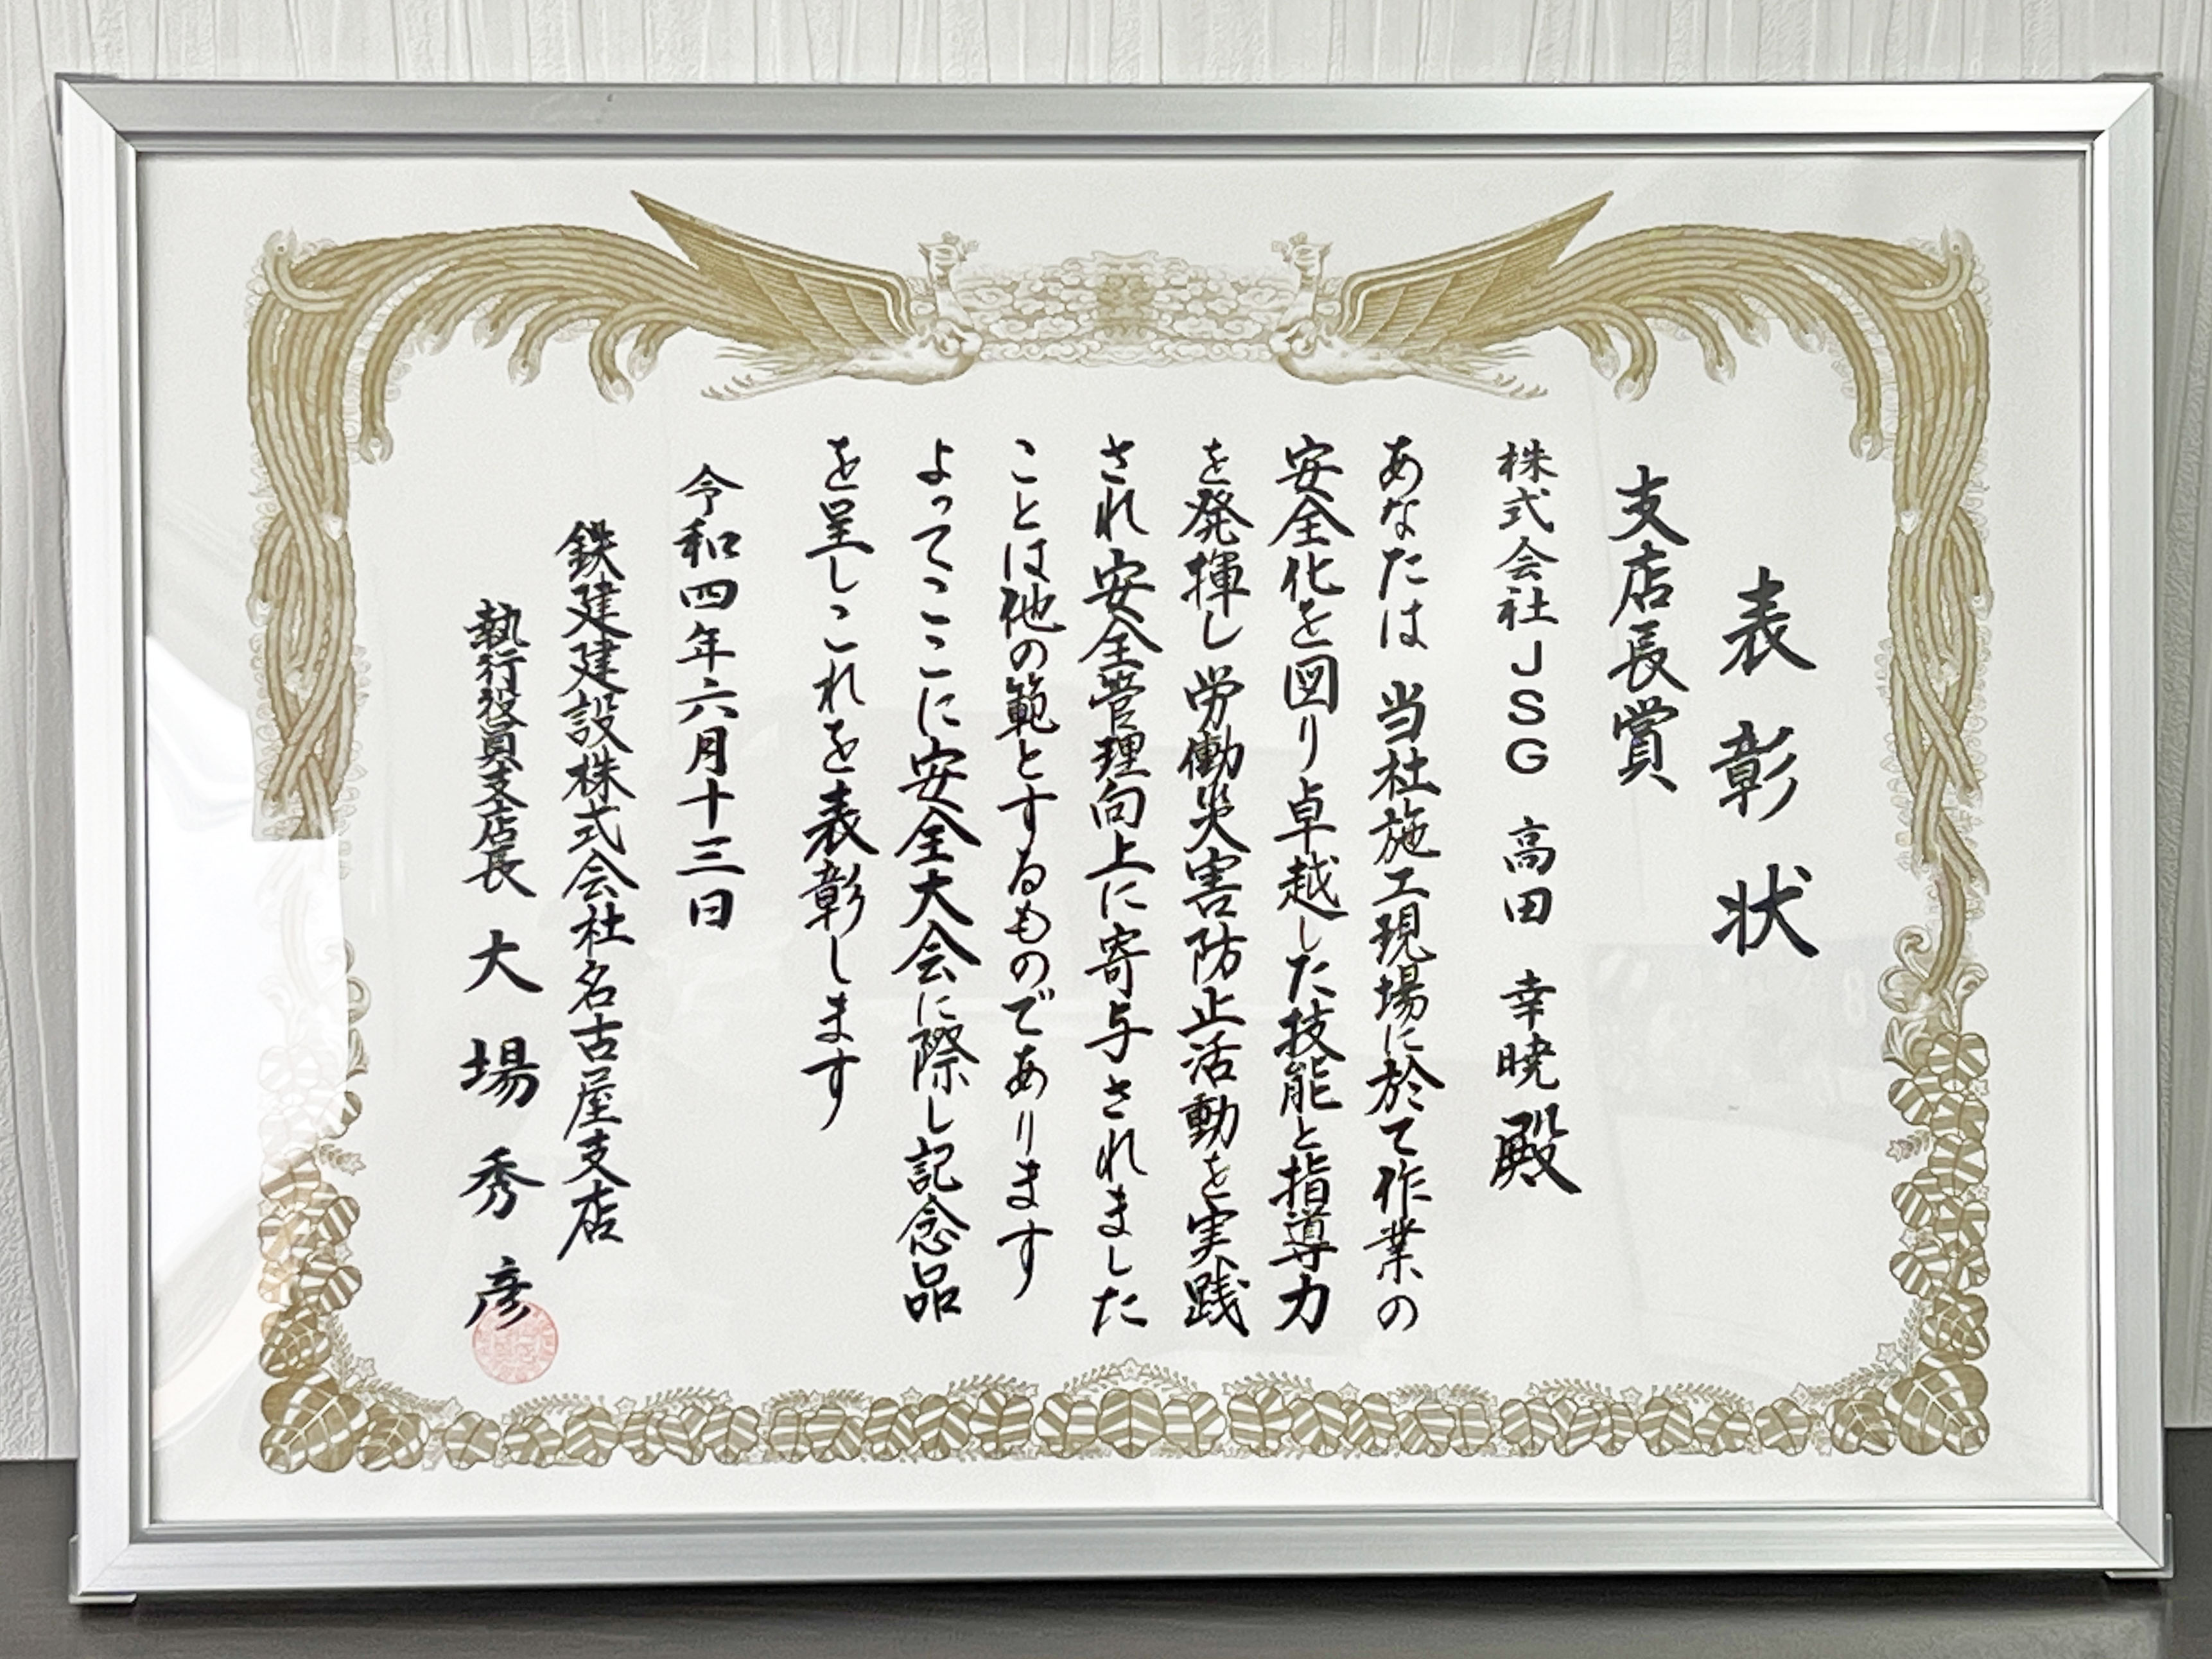 表彰状
支店長賞
株式会社JSG 高田 幸暁 殿
あなたは 当社施工現場に於て作業の
安全化を図り卓越した技能と指導力
を発揮し 労働災害防止活動を実践
され 安全管理向上に寄与されました
ことは他の範とするものであります
よってここに安全大会に際し記念品
を呈しこれを表彰します
令和四年六月十三日
鉄建建設株式会社名古屋支店
執行役員支店長 大場秀彦